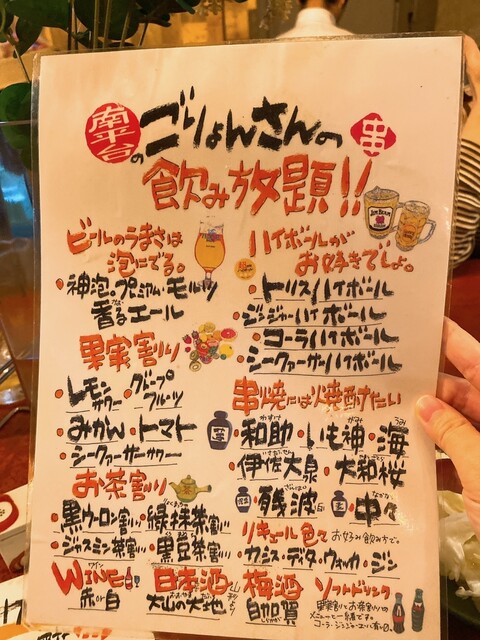 南平台の
ごりょんさんの
串
飲み放題!!
ビールのうまさは
泡にでる。
・神泡。プレミアム・モルツ
香るエール
ハイボールが
お好きでしょ。
JIM BEAM
・トリスハイボール
・ジンジャーハイボール
・コーラハイボール
・シークァーサーハイボール
果実割り
・レモンサワー・グレープフルーツ
・みかん・トマト
・シークァーサーサワー
串焼には焼酎たい
・和助・いも神・海
・伊佐大泉・大和桜
・残波・中々
お茶割り
・黒ウーロン割り・緑抹茶割り
・ジャスミン茶割り・黒豆茶割り
リキュール色々 お好み飲み方で。
・カシス・ディタ・ウォッカ・ジン
WINE
ワイン
赤・白
日本酒
大山の大地
梅酒
白加賀
ソフトドリンク
果実割りとお茶割りの
メニューと一緒です。
コーラ・ジンジャーエール有り〼。